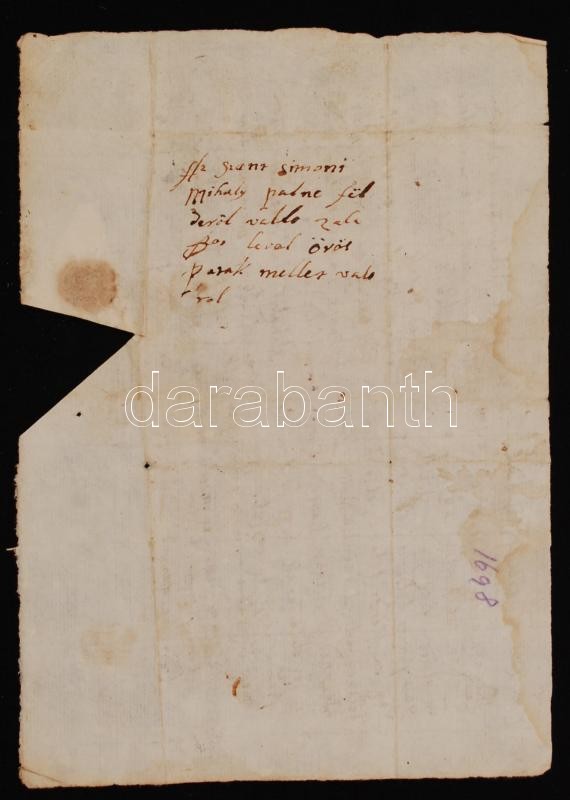 szent simoni
Mihaly palne föl
deröl vallo zala
gos leval örös
patak mellet valo
rol
darabanth
1698